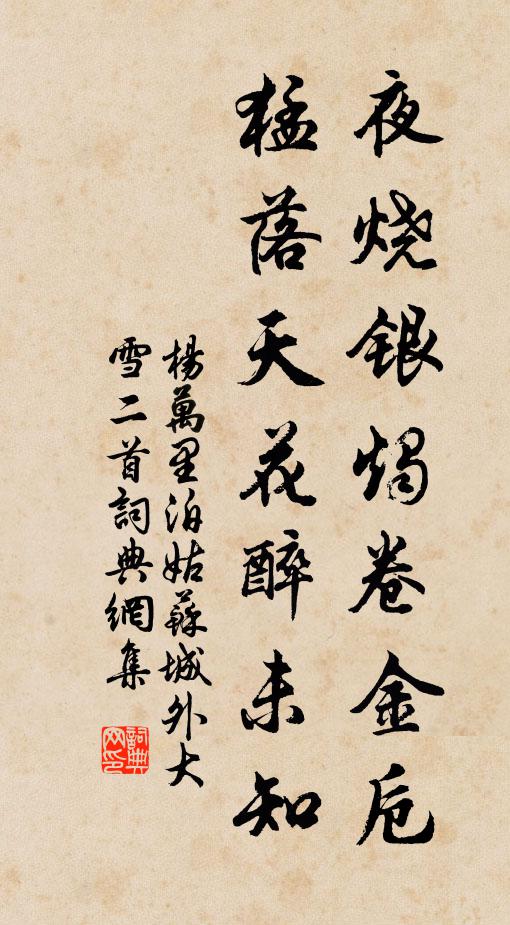 夜烧银烛卷金卮
猛落天花醉未知
楊萬里泊姑蘇城外大
雪二首詞典網集
詞典
网印